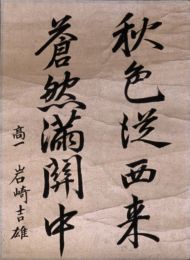 秋色従西来
蒼然満関中
高一 岩崎吉雄